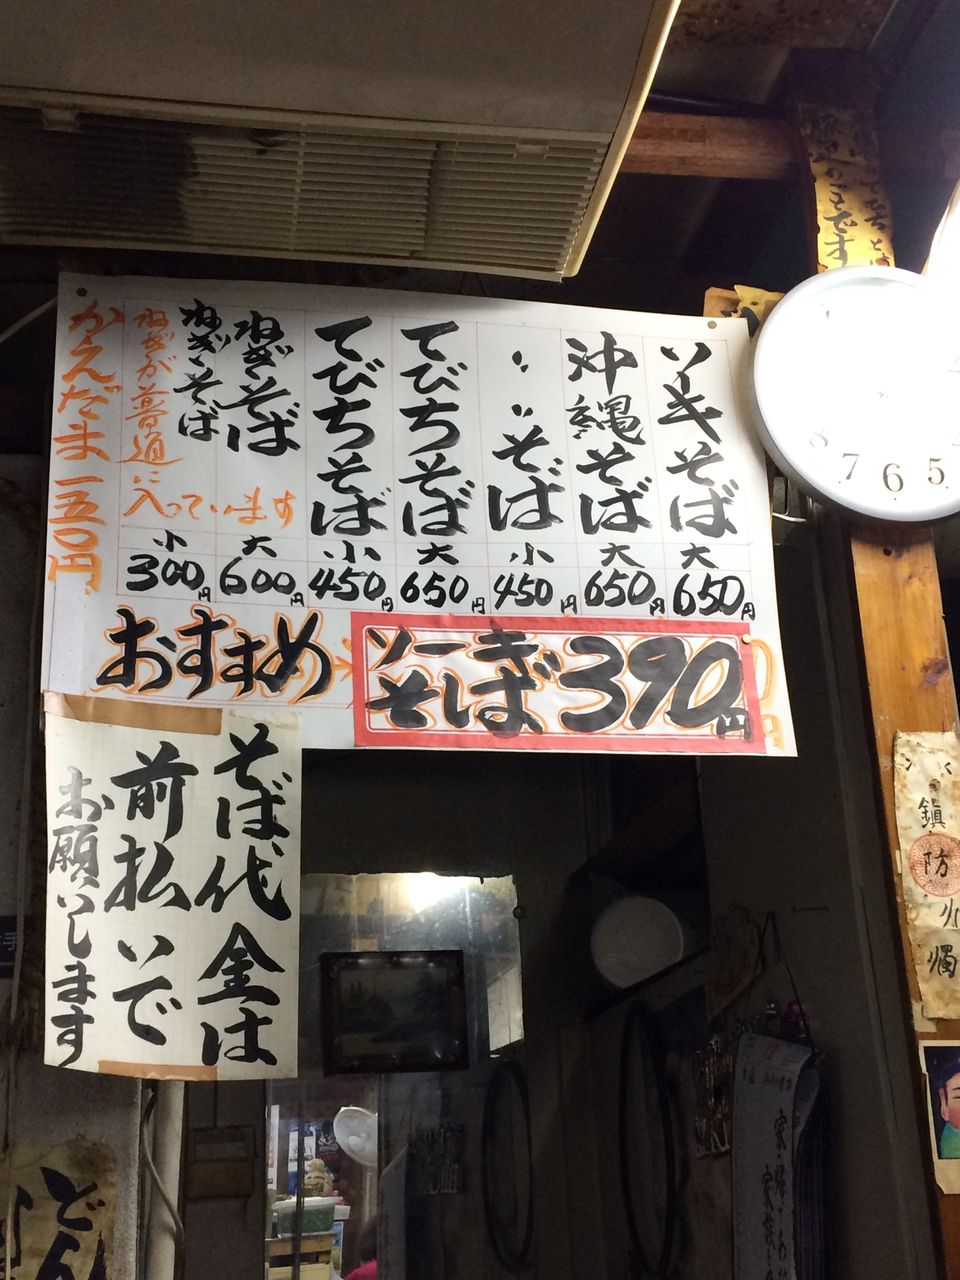 ソーキそば 大 650円
沖縄そば 大 650円
〃 〃 そば 小 450円
てびちそば 大 650円
てびちそば 小 450円
ねぎそば 大 600円
ねぎそば 小 300円
ねぎが普通に
入っています
かえだま 一五〇円
おすすめ
ソーキ
そば 390円
そば代金は
前払いで
お願いします
7 6 5
鎮
防
どん